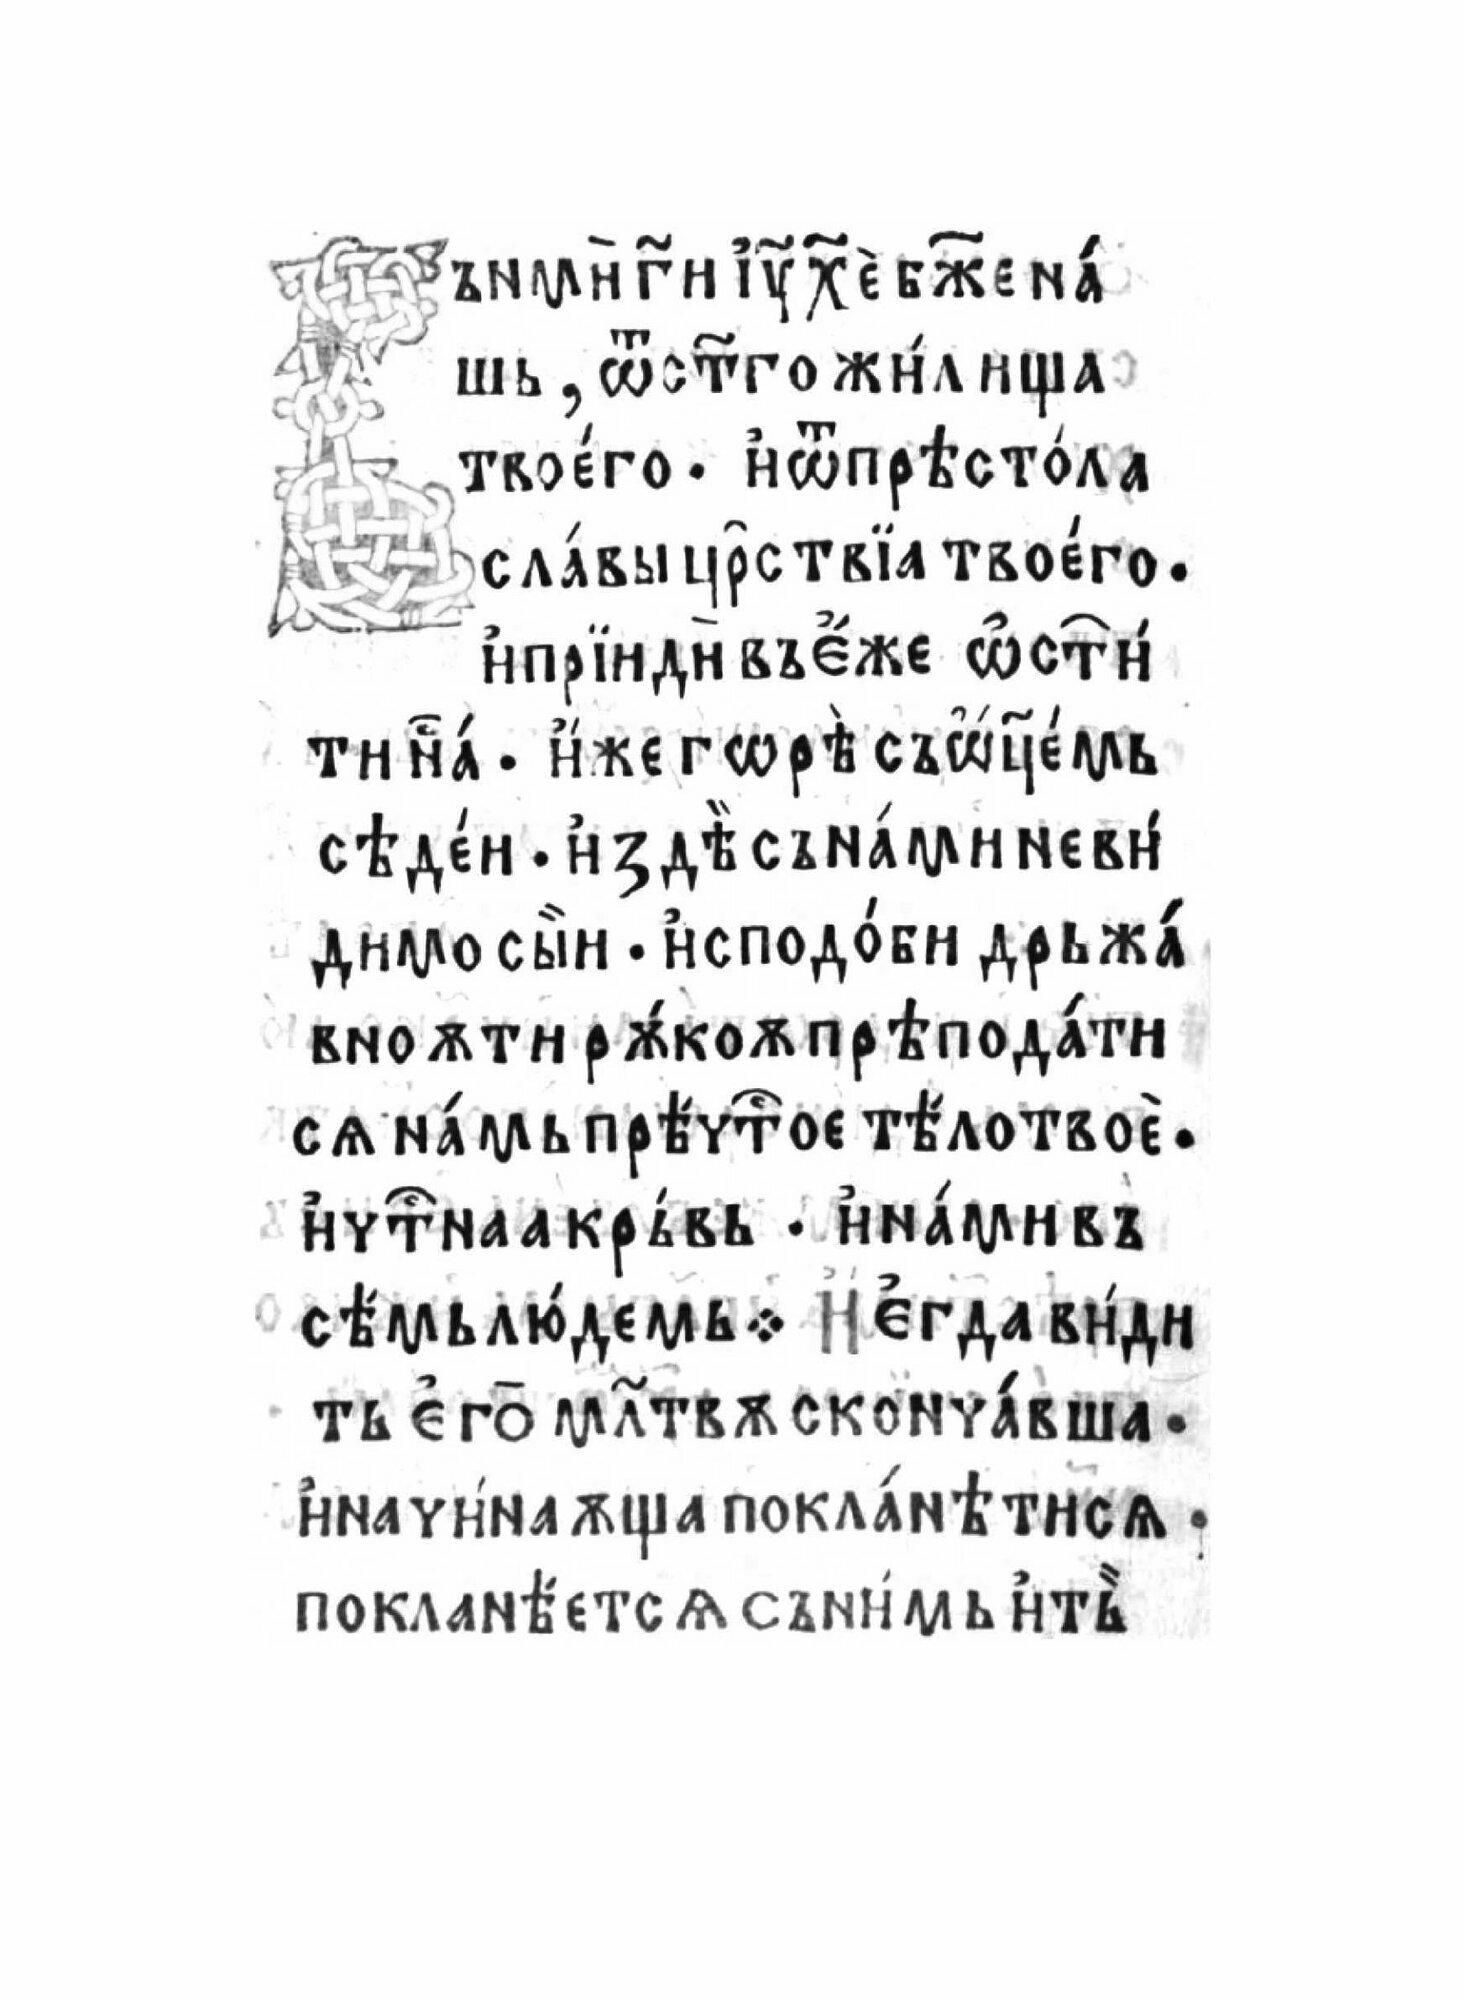 Въ́нмѝ гн҃и і҆у҃ х҃ѐ бж҃е на́
шь, ѿ ст҃го жи́лища
твоє́го · и҆ ѿ прѣсто́ла
сла́вы цр҇ствїа твоє́го ·
и҆ прїиди̏ въ є҆́же ѡ҆ст҇и́
ти н҇а́ · и҆́же горѣ̀ съ ѡ҆ц҃є́мь
сѣде́и · и҆ здѣ̏ съ на́ми неви́
димо сы̏и · и҆ сподо́би дрьжа́
вноѫ ти рѫ́коѫ прѣпода́ти
сѧ на́мь прѣ́чт҇ое тѣ́ло твоѐ ·
и҆ чт҇наа кры́вь · и҆ на́ми въ
сѣ́мь лю́демь ⁘ И є҆гда ви́ди
ть є҆го мл҃твѫ сконча́вша ·
и҆ начи́наѫща покла́нѣти сѧ ·
покланѣ́ет сѧ съ ни́мь и҆ тъ̏